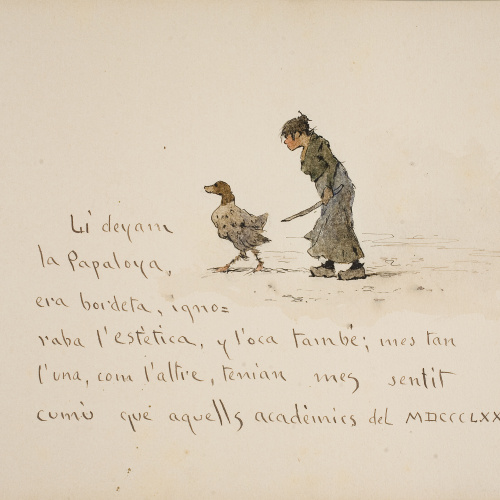 Li deyam
la Papaloya,
era bordeta, igno=
raba l'estètica, y l'oca també; mes tan
l'una, com l'altre, tenian mes sentit
cumù que aquells acadèmics del MDCCCLXX